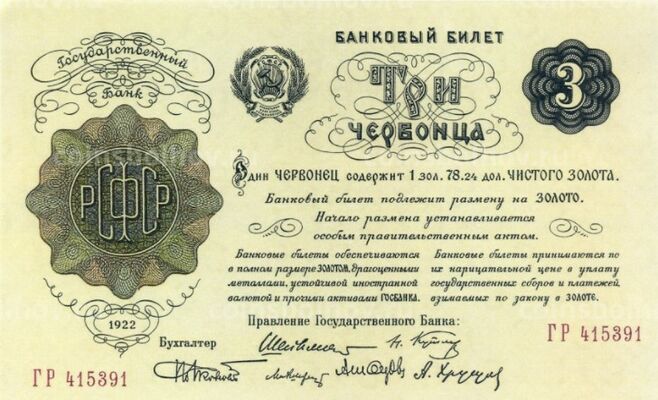 Государственный
Банк
БАНКОВЫЙ БИЛЕТ
ТРИ
ЧЕРВОНЦА
3
РСФСР
Один ЧЕРВОНЕЦ содержит 1 зол. 78.24 дол. ЧИСТОГО ЗОЛОТА.
Банковый билет подлежит размену на ЗОЛОТО.
Начало размена устанавливается
особым правительственным актом.
Банковые билеты обеспечиваются
в полном размере ЗОЛОТОМ, драгоценными
металлами, устойчивой иностранной
валютой и прочими активами ГОСБАНКА.
Банковые билеты принимаются по
их нарицательной цене в уплату
государственных сборов и платежей,
взимаемых по закону в ЗОЛОТЕ.
1922
Правление Государственного Банка:
Бухгалтер
ГР 415391
ГР 415391